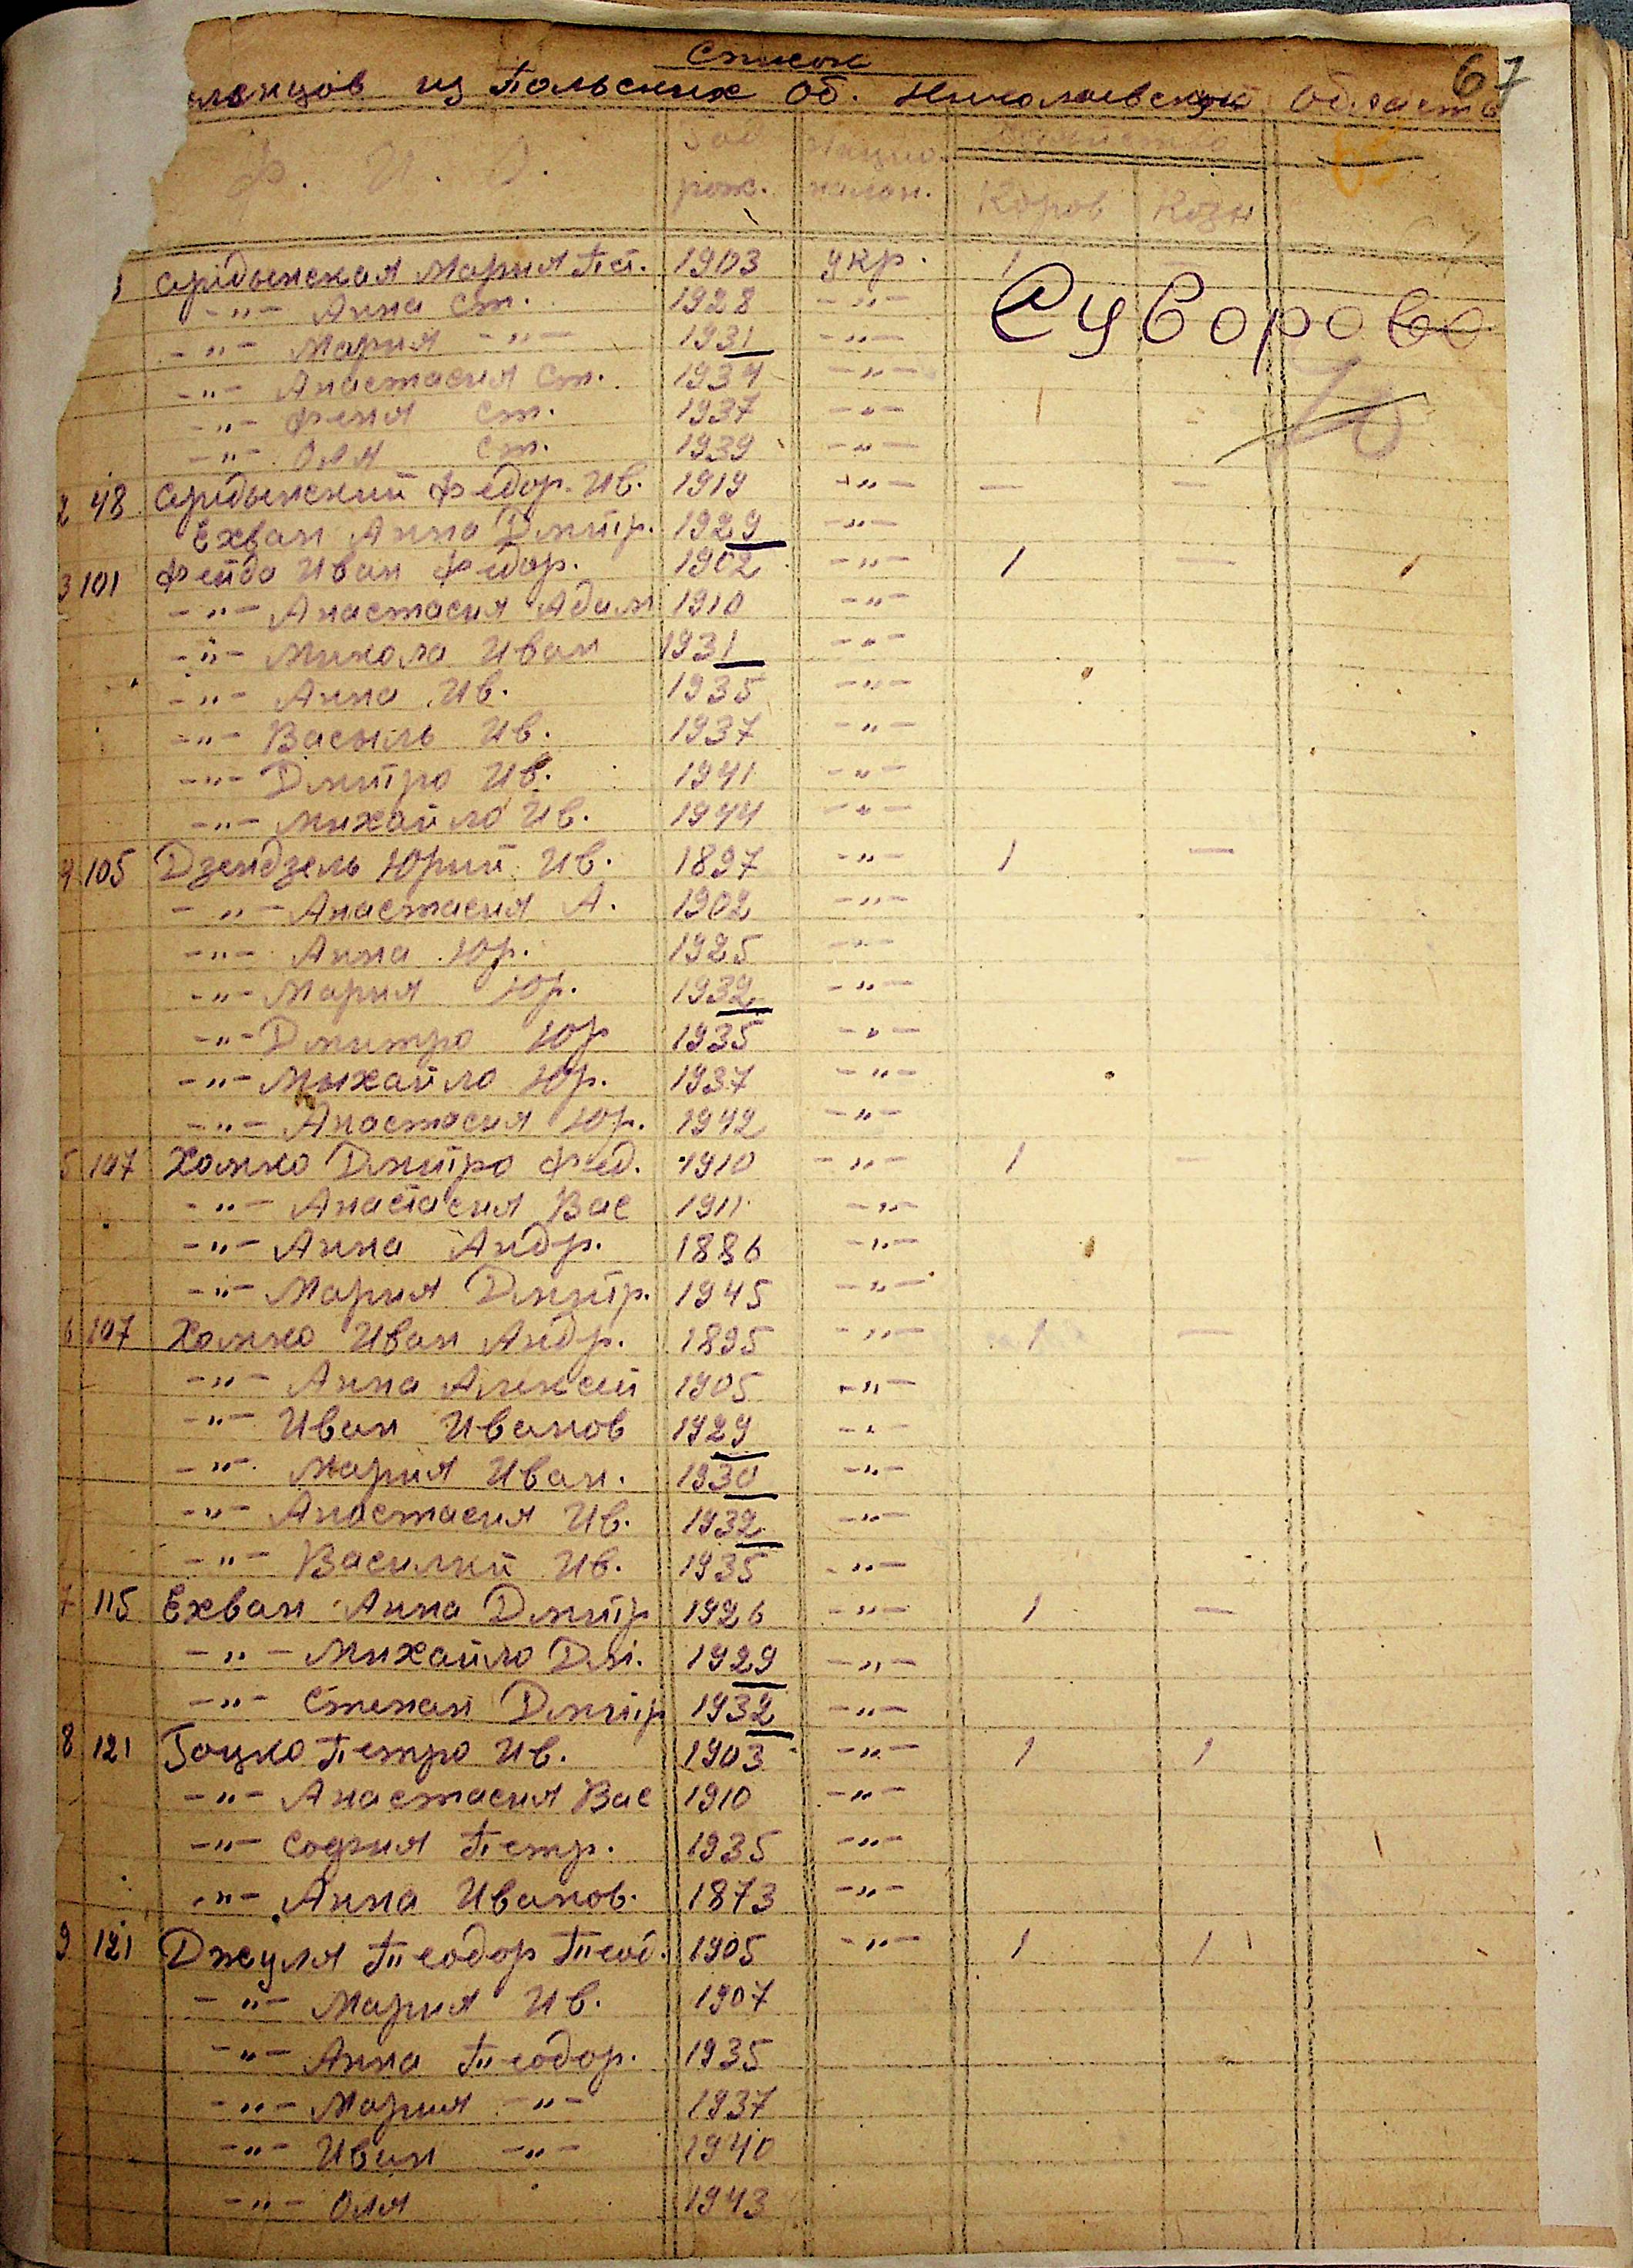 Список 67
ленцов из Польских об. Николаевской области
Ф. И. О. Год рож. Нацио нальн. Коров Козы
Сридынская Мария Пет. 1903 укр. 1
-"- Анна Ст. 1928 -"-
Суворово
-"- Мария -"- 1931 -"-
-"- Анастасия Ст. 1934 -"-
-"- Феня Ст. 1937 -"-
-"- Оля Ст. 1939 -"-
2 48 Сридынский Федор. Ив. 1919 -"- — —
Ехван Анна Дмитр. 1929 -"-
3 101 Фейда Иван Федор. 1902 -"- 1 —
-"- Анастасия Адам 1910 -"-
-"- Микола Иван 1931 -"-
-"- Анна Ив. 1935 -"-
-"- Васыль Ив. 1937 -"
-"- Дмитро Ив. 1941 -"-
-"- Михайло Ив. 1944 -"-
4 105 Дзендзель Юрий Ив. 1897 -"- 1 —
-"- Анастасия А. 1902 -"-
-"- Анна Юр. 1925 -"-
-"- Мария Юр. 1932 -"-
-"- Дмитро Юр 1935 -"-
-"- Мыхайло Юр. 1937 -"-
-"- Анастасия Юр. 1942 -"-
5 107 Хомко Дмитро Фед. 1910 -"- 1 —
-"- Анастасия Вас 1911 -"-
-"- Анна Андр. 1886 -"-
-"- Мария Дмитр. 1945 -"-
6 107 Хомко Иван Андр. 1895 -"- 1 —
-"- Анна Алексей 1905 -"-
-"- Иван Иванов 1929 -"
-"- Мария Иван. 1930 -"-
-"- Анастасия Ив. 1932 -"-
-"- Василий Ив. 1935 -"-
7 115 Ехван Анна Дмитр 1926 -"- 1 —
-"- Михайло Дм. 1929 -"-
-"- Степан Дмитр 1932 -"-
8 121 Гоцко Петро Ив. 1903 -"- 1 1
-"- Анастасия Вас 1910 -"-
-"- София Петр. 1935 -"-
-"- Анна Иванов. 1873 -"-
9 121 Джуля Теодор Теод. 1905 -"- 1 1
-"- Мария Ив. 1907
-"- Анна Теодор. 1935
-"- Мария -"- 1937
-"- Иван -"- 1940
-"- Оля 1943